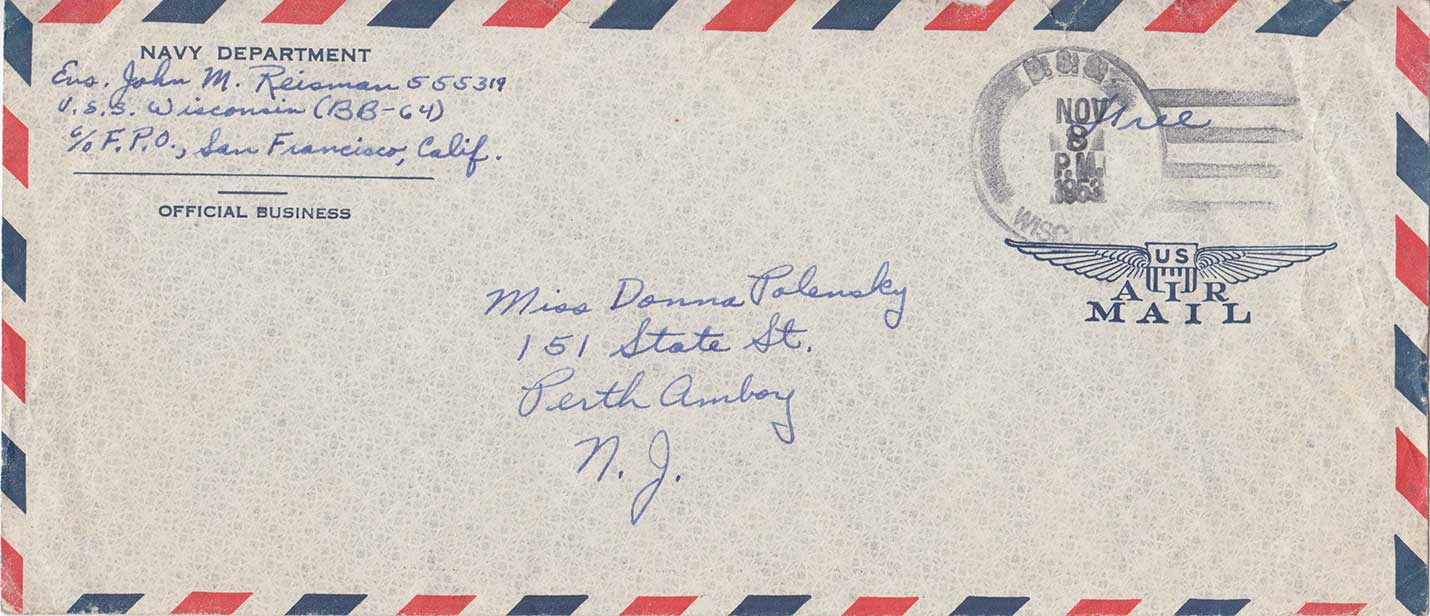 NAVY DEPARTMENT
Ens. John M. Reisman 555319
U.S.S. Wisconsin (BB-64)
c/o F.P.O., San Francisco, Calif.
OFFICIAL BUSINESS
U.S.S.
NOV
8
P.M.
1953
WISCONSIN
Free
US
AIR
MAIL
Miss Donna Polensky
151 State St.
Perth Amboy
N. J.